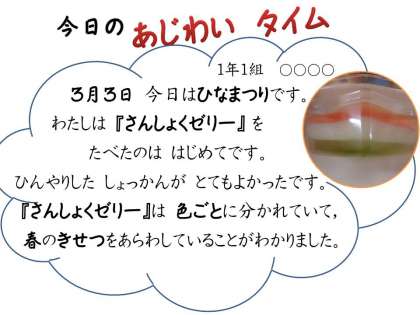 今日の あじわい タイム
1年1組 ○○○○
3月3日 今日はひなまつりです。
わたしは『さんしょくゼリー』を
たべたのは はじめてです。
ひんやりした しょっかんが とてもよかったです。
『さんしょくゼリー』は 色ごとに分かれていて，
春のきせつをあらわしていることがわかりました。